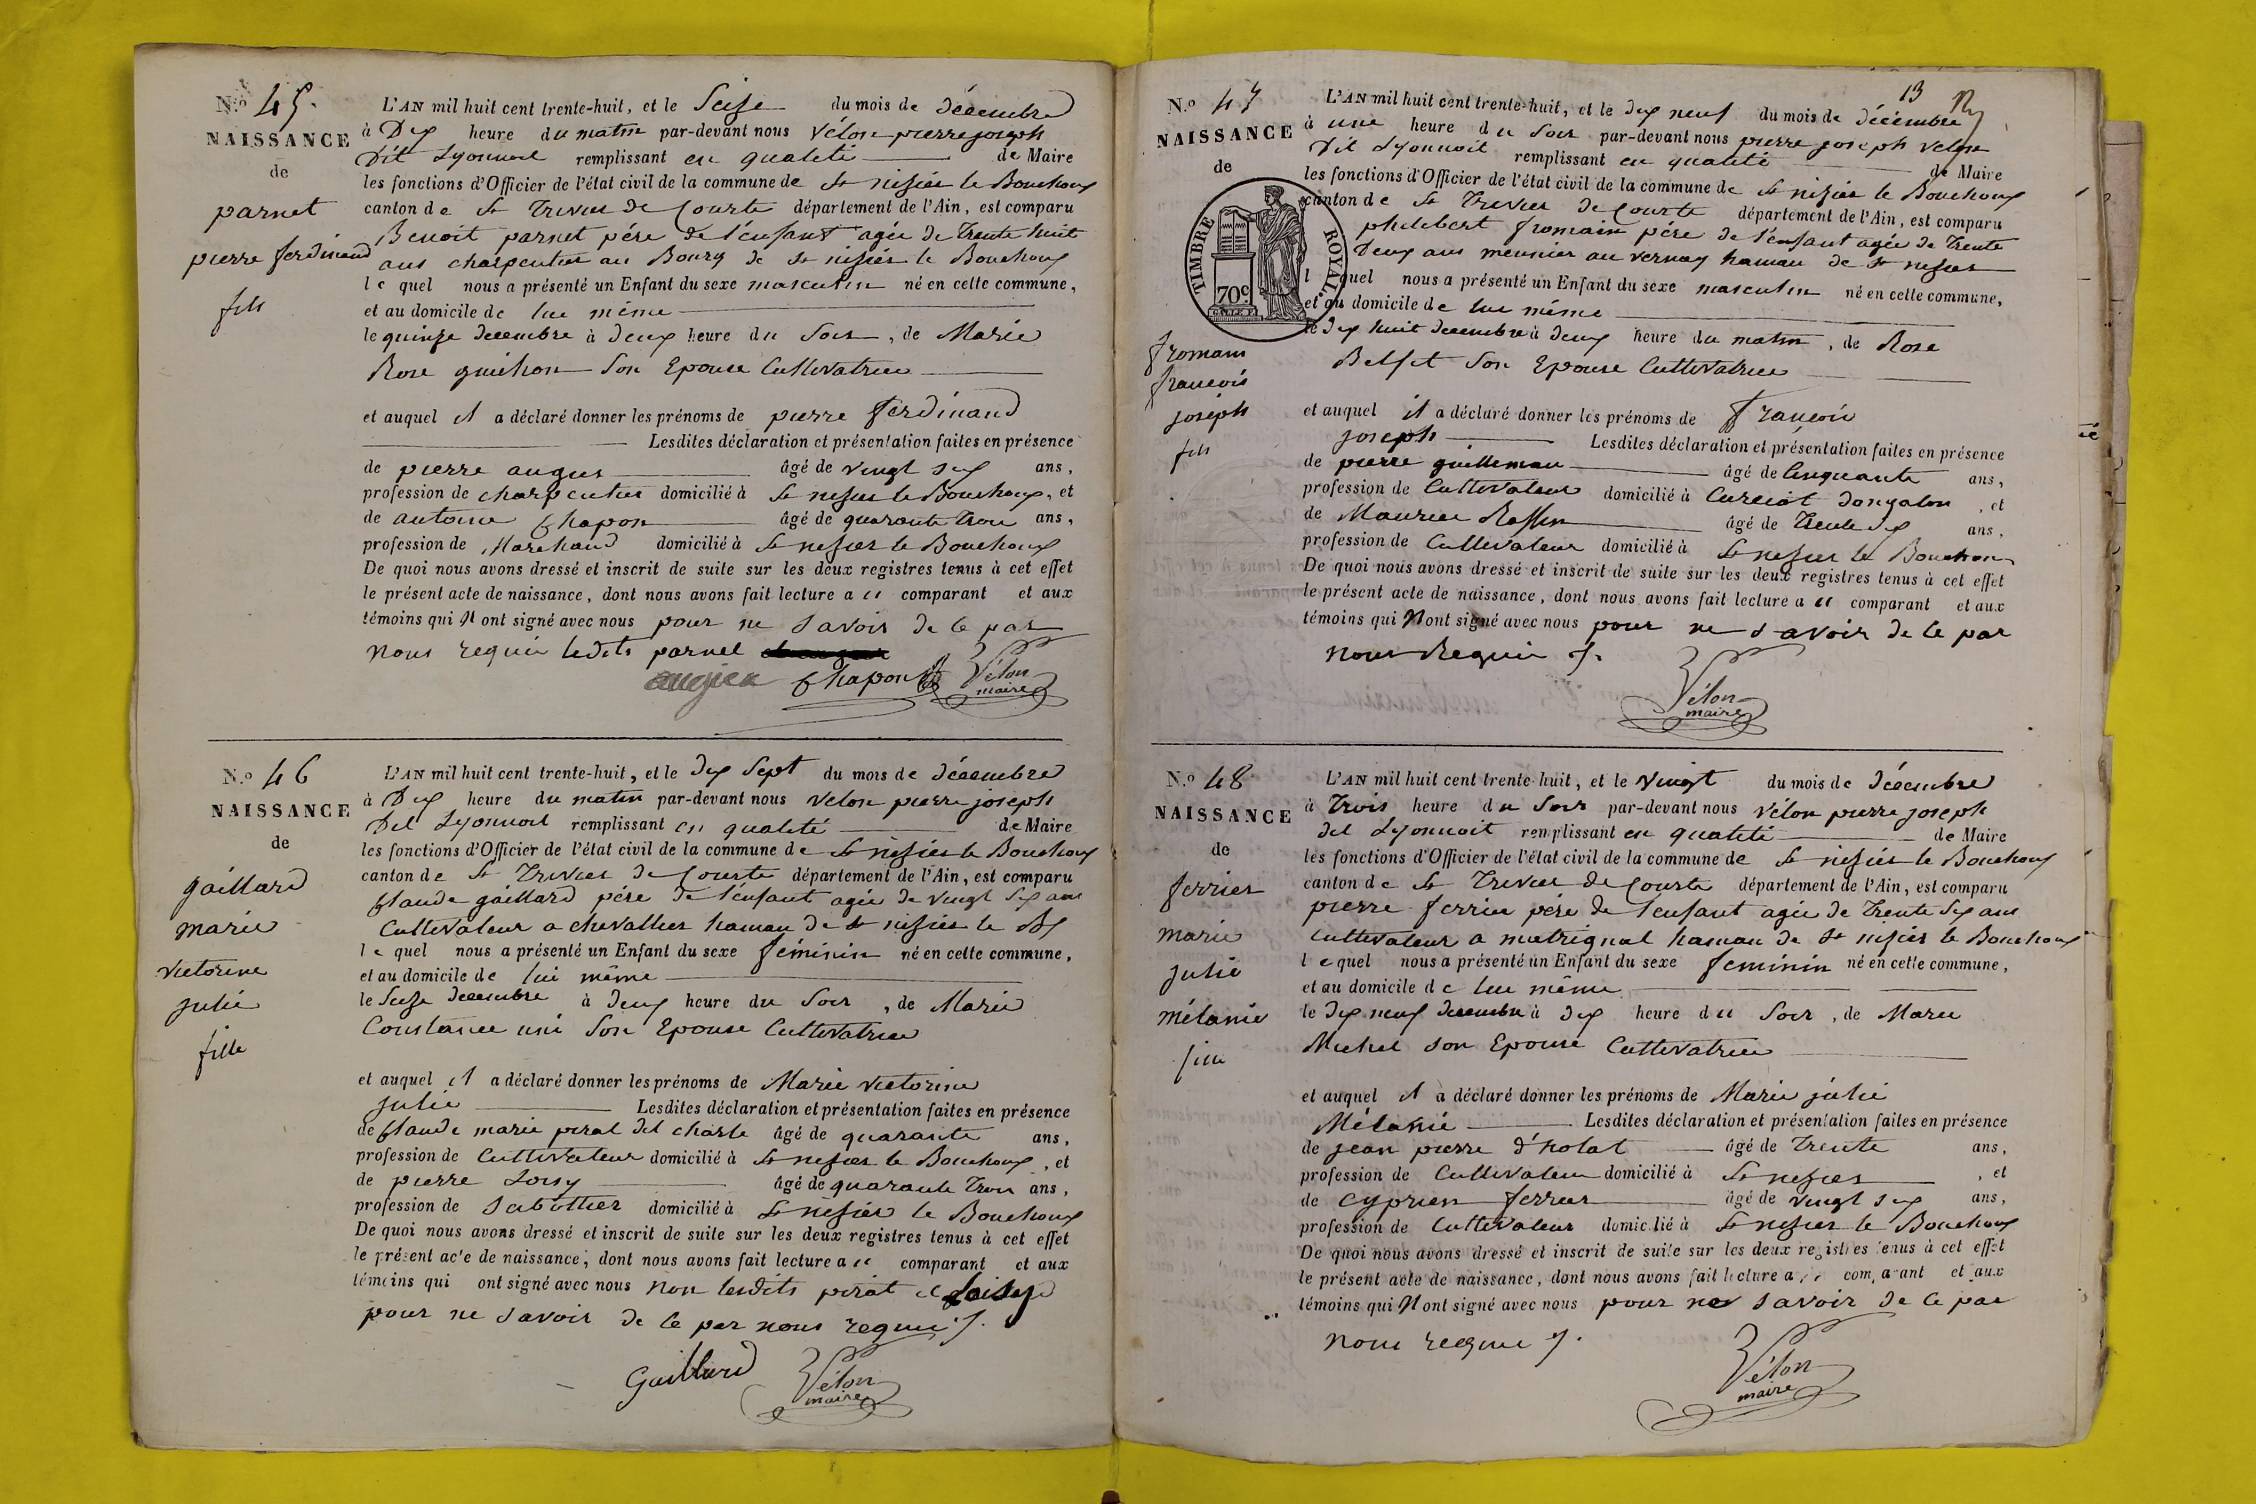 N.º 45.
NAISSANCE
de
parnet
pierre ferdinand
fils
L'AN mil huit cent trente-huit, et le Seize du mois de décembre
à Dix heure du matin par-devant nous Vélon pierre joseph
Dit Lyonnoit remplissant en qualité de Maire
les fonctions d'Officier de l'état civil de la commune de St nisier le Bouchoux
canton de St Trivier de Courte département de l'Ain, est comparu
Benoit parnet pére de l'enfant agée de Trente huit
ans charpentier au Bourg de St nisier le Bouchoux
le quel nous a présenté un Enfant du sexe masculin né en cette commune,
et au domicile de lui même
le quinze decembre à deux heure du Soir, de Marie
Rose guichon Son Epouse Cultivatrice
et auquel il a déclaré donner les prénoms de pierre ferdinand
Lesdites déclaration et présentation faites en présence
de pierre augier âgé de vingt six ans,
profession de charpentier domicilié à St nisier le Bouchoux, et
de antoine Chapon âgé de quarante Trois ans,
profession de Marchand domicilié à St nisier le Bouchoux
De quoi nous avons dressé et inscrit de suite sur les deux registres tenus à cet effet
le présent acte de naissance, dont nous avons fait lecture au comparant et aux
témoins qui N ont signé avec nous pour ne Savoir de ce par
nous requis ledits parnet
augier Chapon Vélon
maire
N.º 46
NAISSANCE
de
gaillard
marie
victorine
julie
fille
L'AN mil huit cent trente-huit, et le dix Sept du mois de décembre
à Dix heure du matin par-devant nous Velon pierre joseph
Dit Lyonnoit remplissant en qualité de Maire
les fonctions d'Officier de l'état civil de la commune de St nisier le Bouchoux
canton de St Trivier de Courte département de l'Ain, est comparu
Claude gaillard pére de l'enfant agée de vingt Six ans
Cultivateur a chevallier hamau de St nisier le Bx
le quel nous a présenté un Enfant du sexe féminin né en cette commune,
et au domicile de lui même
le Seize decembre à deux heure du Soir, de Marie
Constance uni Son Epouse Cultivatrice
et auquel il a déclaré donner les prénoms de Marie victorine
julie Lesdites déclaration et présentation faites en présence
de Claude marie perat dit charle âgé de quarante ans,
profession de Cultivateur domicilié à St nisier le Bouchoux, et
de pierre Loisy âgé de quarante Trois ans,
profession de Sabottier domicilié à St nisier le Bouchoux
De quoi nous avons dressé et inscrit de suite sur les deux registres tenus à cet effet
le présent acte de naissance, dont nous avons fait lecture au comparant et aux
témoins qui ont signé avec nous non lesdits perat et Loisy
pour ne Savoir de ce par nous requis f.
Gaillard Vélon
maire
13
N.º 47
NAISSANCE
de
TIMBRE ROYAL
70c
fromain
francois
joseph
fils
L'AN mil huit cent trente-huit, et le dix neuf du mois de décembre
à une heure du Soir par-devant nous pierre joseph velon
Dit Lyonnoit remplissant en qualité de Maire
les fonctions d'Officier de l'état civil de la commune de St nisier le Bouchoux
canton de St Trivier de Courte département de l'Ain, est comparu
philibert fromain pére de l'enfant agée de Trente
Deux ans meunier au vernay hamau de St nisier
le quel nous a présenté un Enfant du sexe masculin né en cette commune,
et au domicile de lui même
le dix huit decembre à deux heure du matin, de Rose
Belfit Son Epouse Cultivatrice
et auquel il a déclaré donner les prénoms de francois
joseph Lesdites déclaration et présentation faites en présence
de pierre guilleman âgé de Cinquante ans,
profession de Cultivateur domicilié à Curciat dongalon, et
de Maurice Raffin âgé de Trente Six ans,
profession de Cultivateur domicilié à St nisier le Bouchoux
De quoi nous avons dressé et inscrit de suite sur les deux registres tenus à cet effet
le présent acte de naissance, dont nous avons fait lecture au comparant et aux
témoins qui N ont signé avec nous pour ne Savoir de ce par
nous Requis f.
Vélon
maire
N.º 48
NAISSANCE
de
ferrier
marie
julie
mélanie
fille
L'AN mil huit cent trente-huit, et le vingt du mois de décembre
à Trois heure du Soir par-devant nous vélon pierre joseph
dit Lyonnoit remplissant en qualité de Maire
les fonctions d'Officier de l'état civil de la commune de St nisier le Bouchoux
canton de St Trivier de Courte département de l'Ain, est comparu
pierre ferrier pére de l'enfant agée de Trente Six ans
Cultivateur a matrignat hamau de St nisier le Bouchoux
le quel nous a présenté un Enfant du sexe feminin né en cette commune,
et au domicile de lui même
le dix neuf decembre à dix heure du Soir, de Marie
Michel son Epouse Cultivatrice
et auquel il a déclaré donner les prénoms de Marie julie
Mélanie Lesdites déclaration et présentation faites en présence
de jean pierre d'holat âgé de Trente ans,
profession de Cultivateur domicilié à St nisier, et
de cyprien ferrier âgé de vingt six ans,
profession de Cultivateur domicilié à St nisier le Bouchoux
De quoi nous avons dressé et inscrit de suite sur les deux registres tenus à cet effet
le présent acte de naissance, dont nous avons fait lecture au comparant et aux
témoins qui N ont signé avec nous pour ne Savoir de ce par
nous requis f.
Vélon
maire